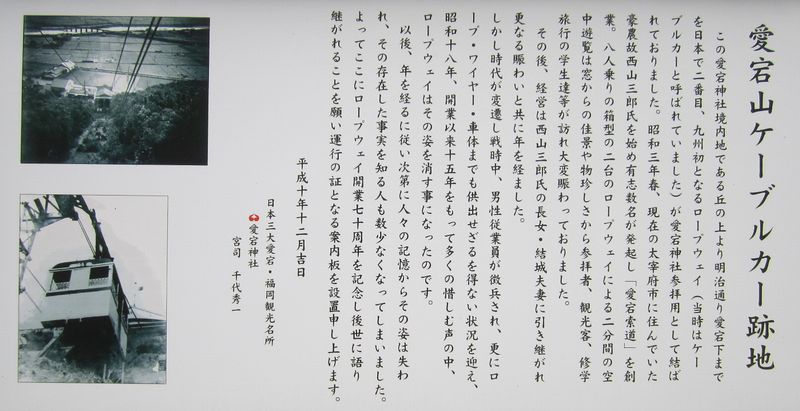 愛宕山ケーブルカー跡地
この愛宕神社境内地である丘の上より明治通り愛宕下まで
を日本で二番目、九州初となるロープウェイ（当時はケー
ブルカーと呼ばれていました）が愛宕神社参拝用として結ば
れておりました。昭和三年春、現在の太宰府市に住んでいた
豪農故西山三郎氏を始め有志数名が発起し「愛宕索道」を創
業。八人乗りの箱型の二台のロープウェイによる二分間の空
中遊覧は窓からの佳景や物珍しさから参拝者、観光客、修学
旅行の学生達等が訪れ大変賑わっておりました。
その後、経営は西山三郎氏の長女・結城夫妻に引き継がれ
更なる賑わいと共に年を経ました。
しかし時代が変遷し戦時中、男性従業員が徴兵され、更にロ
ープ・ワイヤー・車体までも供出せざるを得ない状況を迎え、
昭和十八年、開業以来十五年をもって多くの惜しむ声の中、
ロープウェイはその姿を消す事になったのです。
以後、年を経るに従い次第に人々の記憶からその姿は失わ
れ、その存在した事実を知る人も数少なくなってしまいました。
よってここにロープウェイ開業七十周年を記念し後世に語り
継がれることを願い運行の証となる案内板を設置申し上げます。
平成十年十二月吉日
日本三大愛宕・福岡観光名所
愛宕神社
宮司 千代秀一